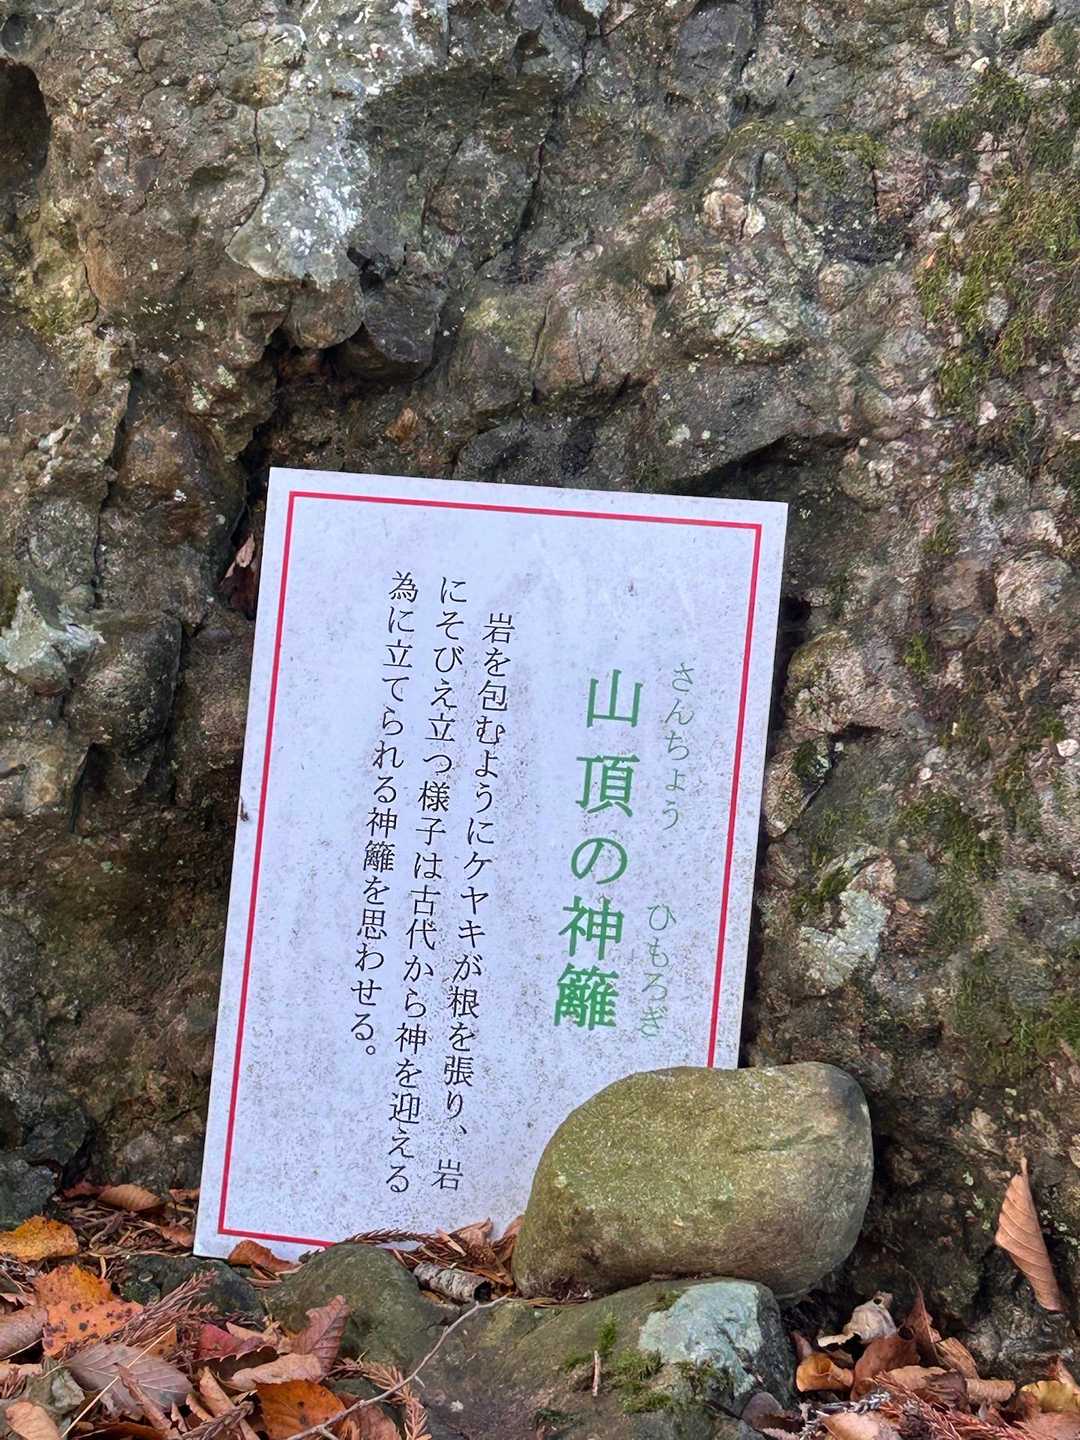 さんちょう　ひもろぎ
山頂の神籬
岩を包むようにケヤキが根を張り、岩
にそびえ立つ様子は古代から神を迎える
為に立てられる神籬を思わせる。